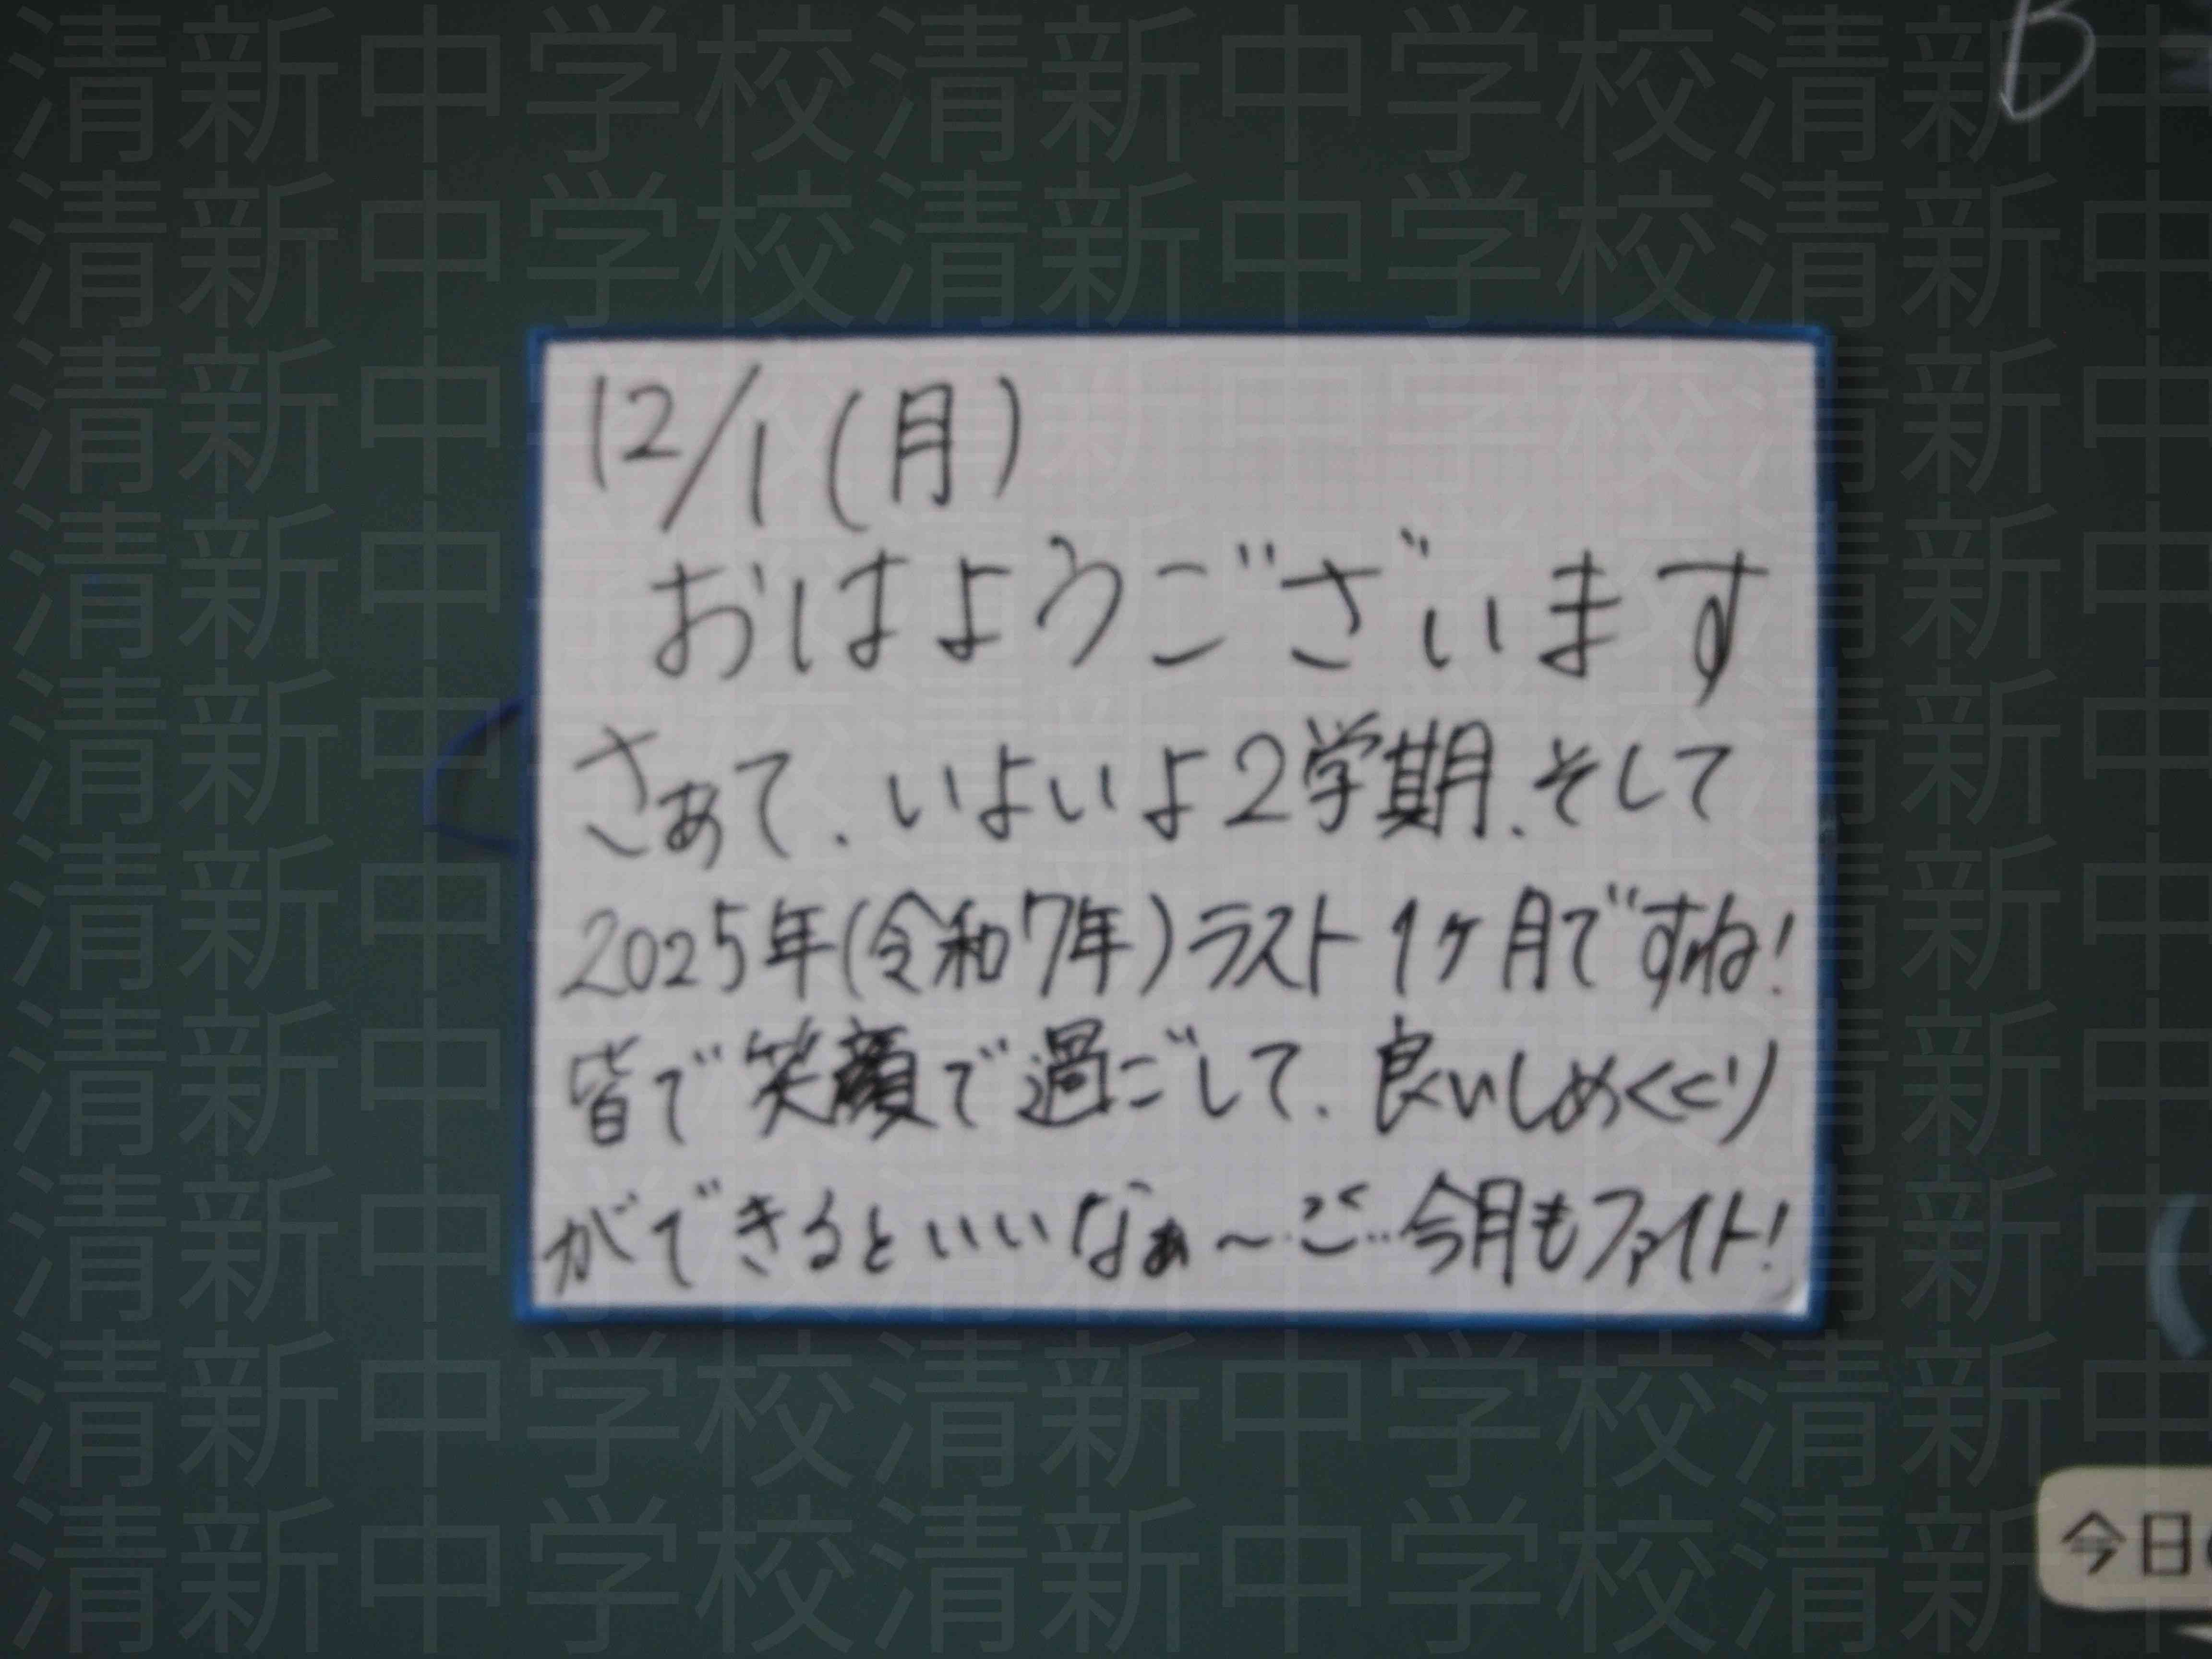 B
12/1(月)
おはようございます
さあて、いよいよ2学期、そして
2025年(令和7年)ラスト1ヶ月ですね!
皆で笑顔で過ごして、良いしめくくり
ができるといいなぁ〜…今月もファイト!
今日
清新中学校清新中学校清新中